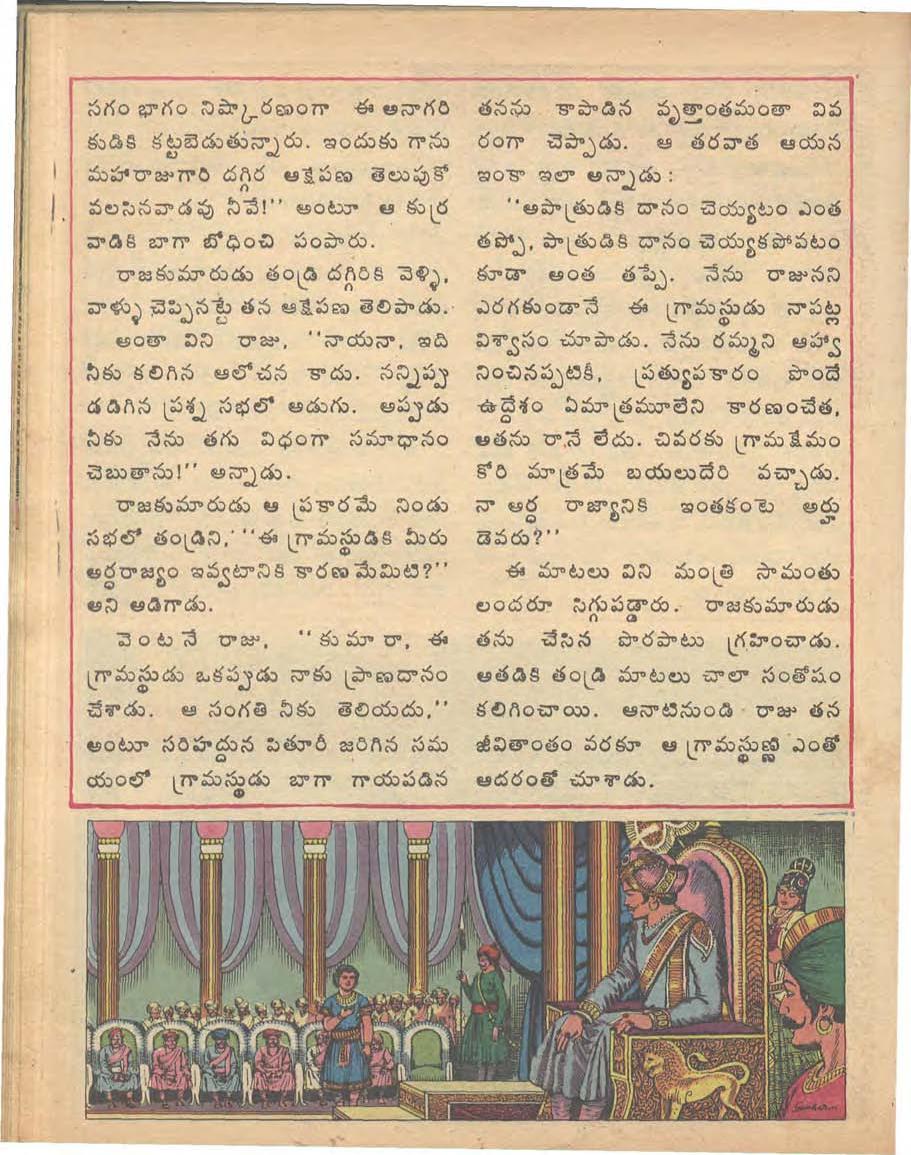 సగం భాగం నిష్కారణంగా ఈ అనాగరి
కుడికి కట్టబెడుతున్నారు. ఇందుకు గాను
మహారాజుగారి దగ్గిర ఆక్షేపణ తెలుపుకో
వలసినవాడవు నీవే!'' అంటూ ఆ కుర్ర
వాడికి బాగా బోధించి పంపారు.
రాజకుమారుడు తండ్రి దగ్గిరికి వెళ్ళి,
వాళ్ళు చెప్పినట్టే తన ఆక్షేపణ తెలిపాడు.
అంతా విని రాజు, ''నాయనా, ఇది
నీకు కలిగిన ఆలోచన కాదు. నన్నిప్పు
డడిగిన ప్రశ్న సభలో అడుగు. అప్పుడు
నీకు నేను తగు విధంగా సమాధానం
చెబుతాను!'' అన్నాడు.
రాజకుమారుడు ఆ ప్రకారమే నిండు
సభలో తండ్రిని, ''ఈ గ్రామస్థుడికి మీరు
అర్ధరాజ్యం ఇవ్వటానికి కారణమేమిటి?''
అని అడిగాడు.
వెంటనే రాజు, ''కుమారా, ఈ
గ్రామస్థుడు ఒకప్పుడు నాకు ప్రాణదానం
చేశాడు. ఆ సంగతి నీకు తెలియదు,''
అంటూ సరిహద్దున పితూరీ జరిగిన సమ
యంలో గ్రామస్థుడు బాగా గాయపడిన
తనను కాపాడిన వృత్తాంతమంతా వివ
రంగా చెప్పాడు. ఆ తరవాత ఆయన
ఇంకా ఇలా అన్నాడు :
''అపాత్రుడికి దానం చెయ్యటం ఎంత
తప్పో, పాత్రుడికి దానం చెయ్యకపోవటం
కూడా అంత తప్పే. నేను రాజునని
ఎరగకుండానే ఈ గ్రామస్థుడు నాపట్ల
విశ్వాసం చూపాడు. నేను రమ్మని ఆహ్వా
నించినప్పటికీ, ప్రత్యుపకారం పొందే
ఉద్దేశం ఏమాత్రమూలేని కారణంచేత,
అతను రానే లేదు. చివరకు గ్రామక్షేమం
కోరి మాత్రమే బయలుదేరి వచ్చాడు.
నా అర్ధ రాజ్యానికి ఇంతకంటె అర్హు
డెవరు?''
ఈ మాటలు విని మంత్రి సామంతు
లందరూ సిగ్గుపడ్డారు. రాజకుమారుడు
తను చేసిన పొరపాటు గ్రహించాడు.
అతడికి తండ్రి మాటలు చాలా సంతోషం
కలిగించాయి. ఆనాటినుండి రాజు తన
జీవితాంతం వరకూ ఆ గ్రామస్థుణ్ణి ఎంతో
ఆదరంతో చూశాడు.